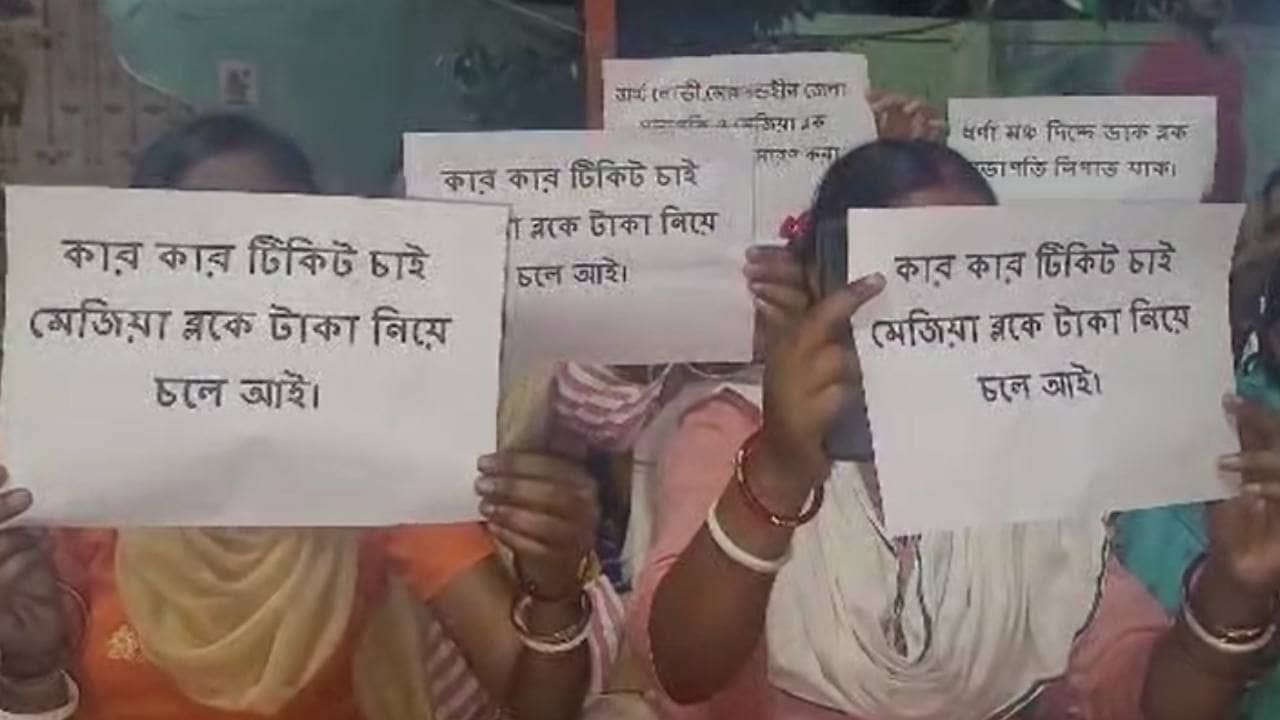 কার কার টিকিট চাই
মেজিয়া ব্লকে টাকা নিয়ে
চলে আই।
কার কার টিকিট চাই
ব্লকে টাকা নিয়ে
চলে আই।
জেলা
মেজিয়া ব্লক
ধর্ণা মঞ্চ দিচ্ছে ডাক ব্লক
নিপাত যাক।
কার কার টিকিট চাই
মেজিয়া ব্লকে টাকা নিয়ে
চলে আই।